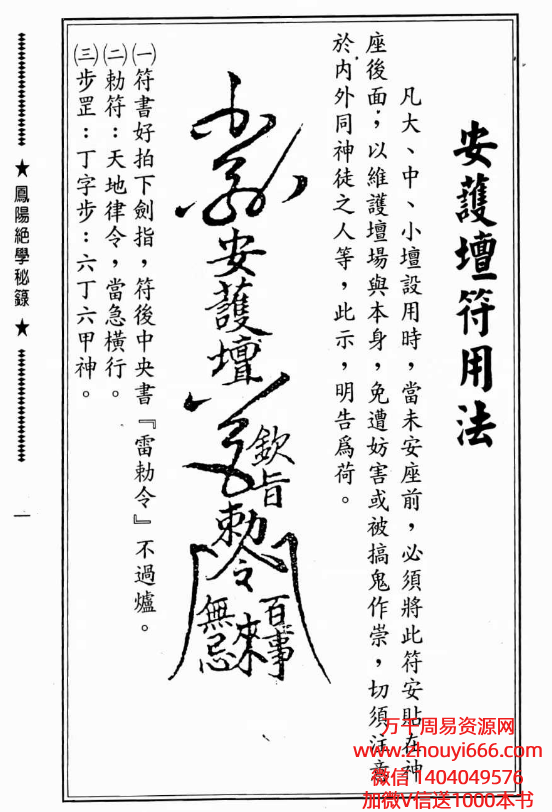 安護壇符用法
凡大、中、小壇設用時，當未安座前，必須將此符安貼在神
座後面；以維護壇場與本身，免遭妨害或被搞鬼作祟，切須注意
於內外同神徒之人等，此示，明告爲荷。
安護壇
欽旨
勅令
百事
來
無忌
㈠符書好拍下劍指，符後中央書『雷勅令』不過爐。
㈡勅符：天地律令，當急橫行。
㈢步罡：丁字步：六丁六甲神。
★鳳陽絕學秘錄★
一
万千周易资源网
www.zhouyi666.com
微信1404049576
加微V信送1000本书